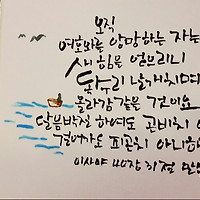 오직
여호와를 앙망하는 자는
새 힘을 얻으리니
독수리 날개치며
올라감 같을 것이요
달음박질 하여도 곤비치
걸어가도 피곤치 아니
이사야 40장 31절 말씀